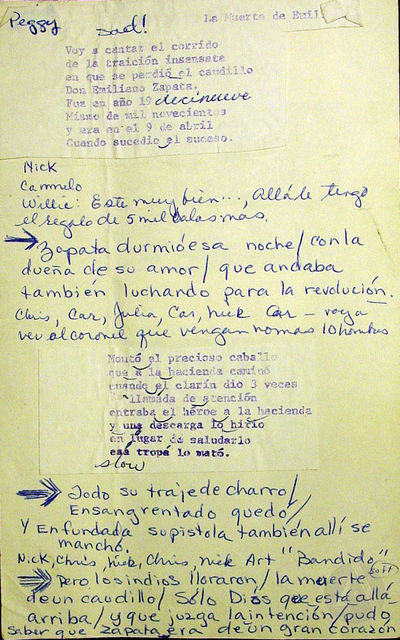 Peggy
sad!
La Muerte de Emil
Voy a cantar el corrido
de la traición insensata
en que se perdió el caudillo
Don Emiliano Zapata.
Fue en año 19 decinueve
Mismo de mil novecientos
y era en el 9 de abril
Cuando sucedio el suceso.
Nick
Carmelo
Willie: Este muy bien..., Allá le tengo
el regalo de 5 mil balas mas.
Zapata durmió esa noche/ con la
dueña de su amor/ que andaba
también luchando para la revolución.
Chris, Car, Julia, Car, Nick Car - voy a
ver al coronel que vengan nomas 10 hombres
Montó el precioso caballo
que a la hacienda caminó
cuando el clarín dio 3 veces
llamada de atención
entraba el héroe a la hacienda
y una descarga lo hirio
en lugar de saludarlo
esa tropa lo mató.
slow
Todo su traje de charro/
Ensangrentado quedo/
Y Enfundada su pistola también allí se
manchó.
Nick, Chris, Nick, Chris, Nick Art "Bandido"
soft
Pero los indios lloraron/ la muerte
de un caudillo/ Sólo Dios que está allá
arriba/ y que juzga la intención/ pudo
saber que Zapata era de un gran corazon